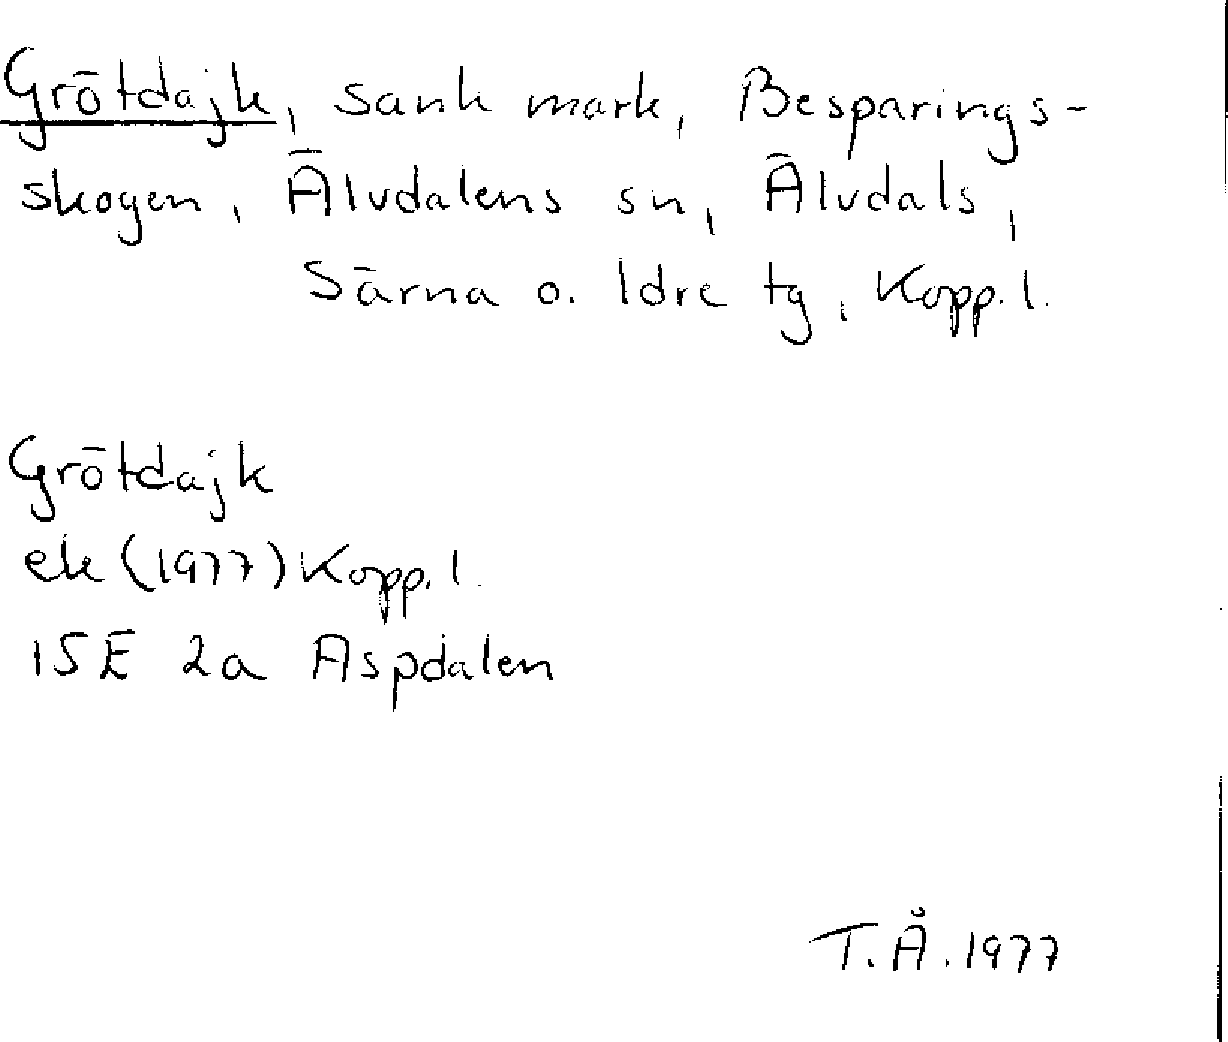 Grötdajk, sank mark, Besparings-
skogen, Älvdalens sn, Älvdals,
Särna o. Idre tg, Kopp. l.
Grötdajk
ek (1977) Kopp. l.
15E 2a Aspdalen
T.Å. 1977